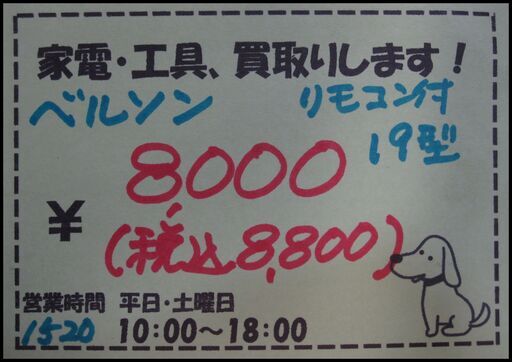 家電・工具、買取りします!
ベルソン リモコン付
19型
8,000
¥
(税込8,800)
営業時間 平日・土曜日
1520 10:00〜18:00